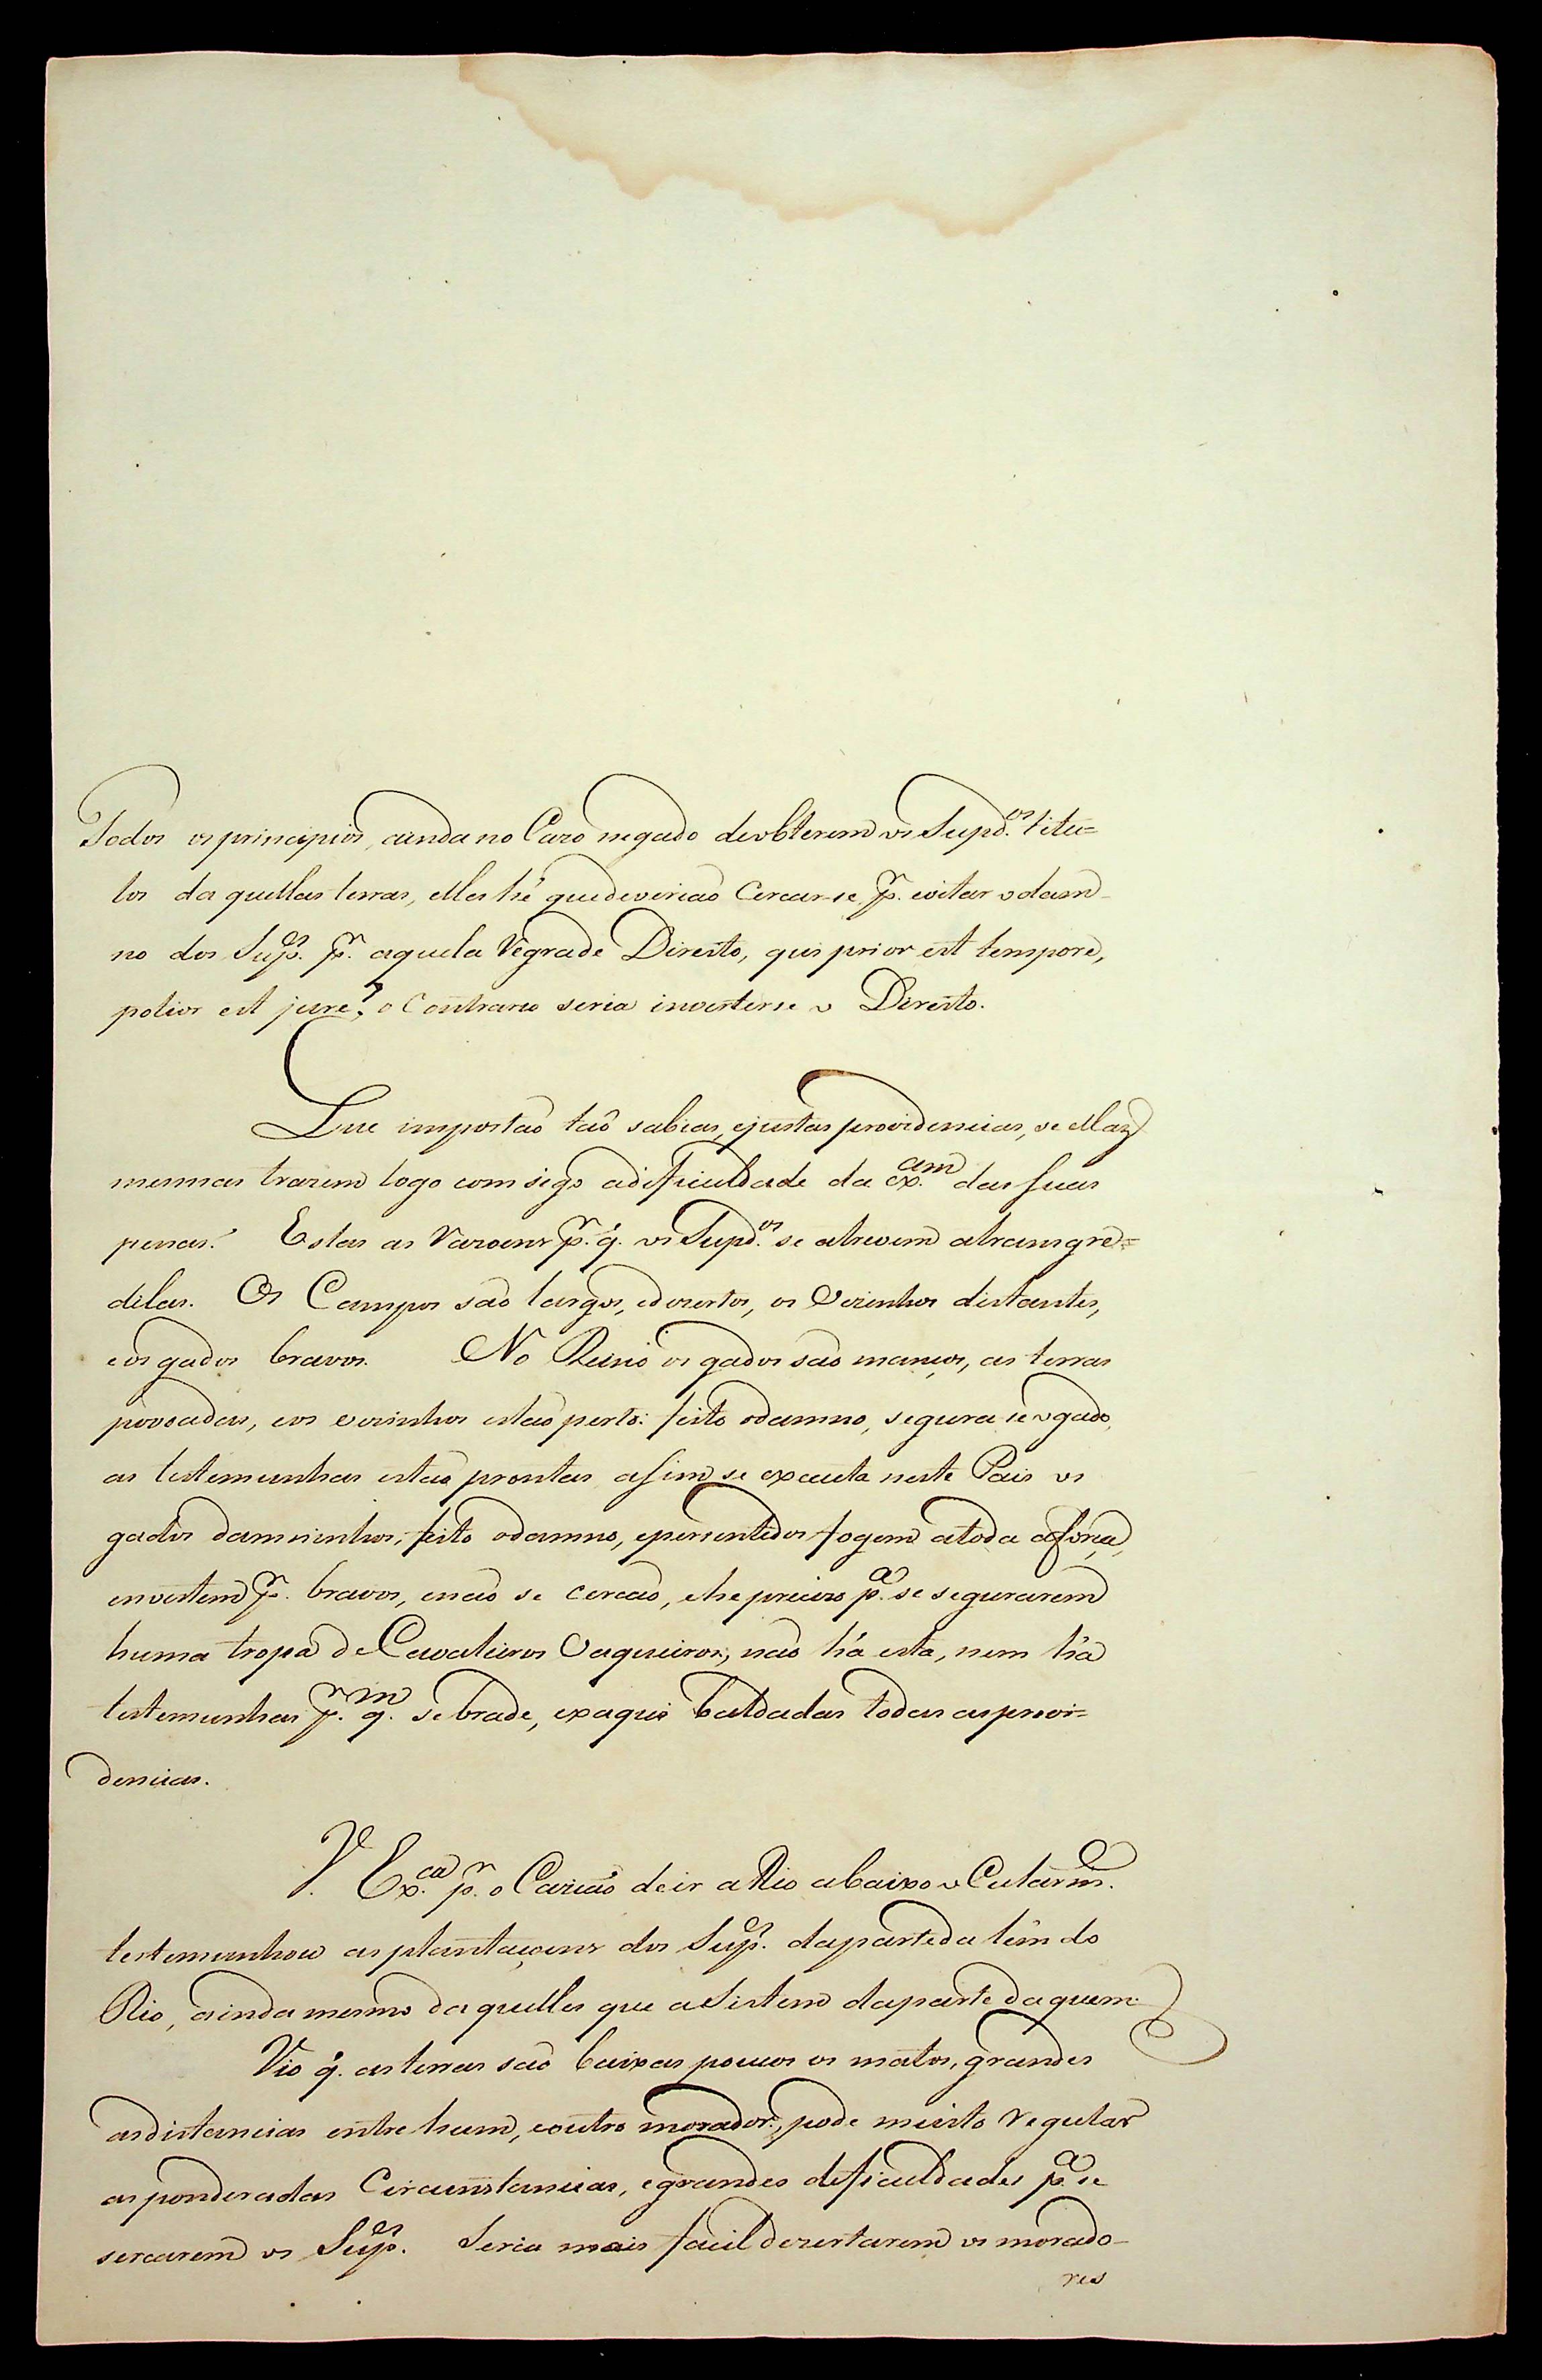 Todos os principios, ainda no Cazo negado de obterem os Supd.os titu=
los da quellas terras, elles hé que deveriaõ cercar-se p.r evitar o dam-
no dos Sup.es p.r aquela Regra de Direito, qui prior est tempore,
potior est jure; o Contrario seria inverterse o Direito.
Que importaõ taõ sabias, e justas providencias, se ellas
mesmas trazem logo com sigo a dificuldade da ex.am das suas
penas? Estas as razoens p.r q. os Supd.os se atrevem a transgre=
dilas. Os Campos saõ largos, e dezertos, os Vezinhos distantes,
e os gados bravos. No Reino os gados saõ mansos, as terras
povoadas, e os vezinhos estaõ perto: feito o damno, segura se o gado,
as testemunhas estaõ prontas asim se executa neste Pais os
gados damninhos; feito o damno, e persentidos fogem a toda a força,
envestem p.r bravos, e naõ se cercaõ, e he precizo p.a se segurarem
huma tropa de Cavaleiros Vaqueiros; naõ há esta, nem há
testemunhas p.r q.m se brade, ex aqui baldadas todas as provi=
dencias.
V. Ex.ca p.r o Caziaõ de ir a Rio abaixo o Cutarm.e
testemunhou as plantaçoens dos Sup.es da parte da lêm do
Rio, ainda mesmo da quelles que asistem da parte da quem.
Vio q. as terras saõ baixas poucos os matos, grandes
as distancias entre hum, e outro morador, pode muito regular
as ponderadas Circunstancias, e grandes dificuldades p.a se
sercarem os Sup.es Seria mais facil dezertarem os morado-
res